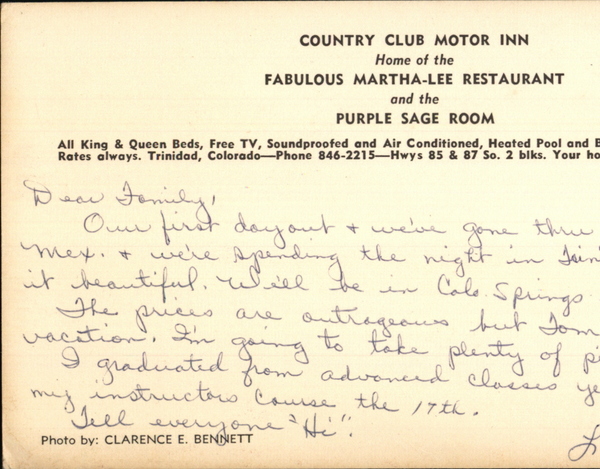 COUNTRY CLUB MOTOR INN
Home of the
FABULOUS MARTHA-LEE RESTAURANT
and the
PURPLE SAGE ROOM
All King & Queen Beds, Free TV, Soundproofed and Air Conditioned, Heated Pool and
Rates always. Trinidad, Colorado—Phone 846-2215—Hwys 85 & 87 So. 2 blks. Your
Dear Family,
Our first day out & we've gone thru
Mex. & we're spending the night in
it beautiful. We'll be in Colo. Springs
The prices are outrageous but Tom
vacation. I'm going to take plenty of
I graduated from advanced classes
my instructors course the 17th.
Tell everyone "Hi".
Photo by: CLARENCE E. BENNETT